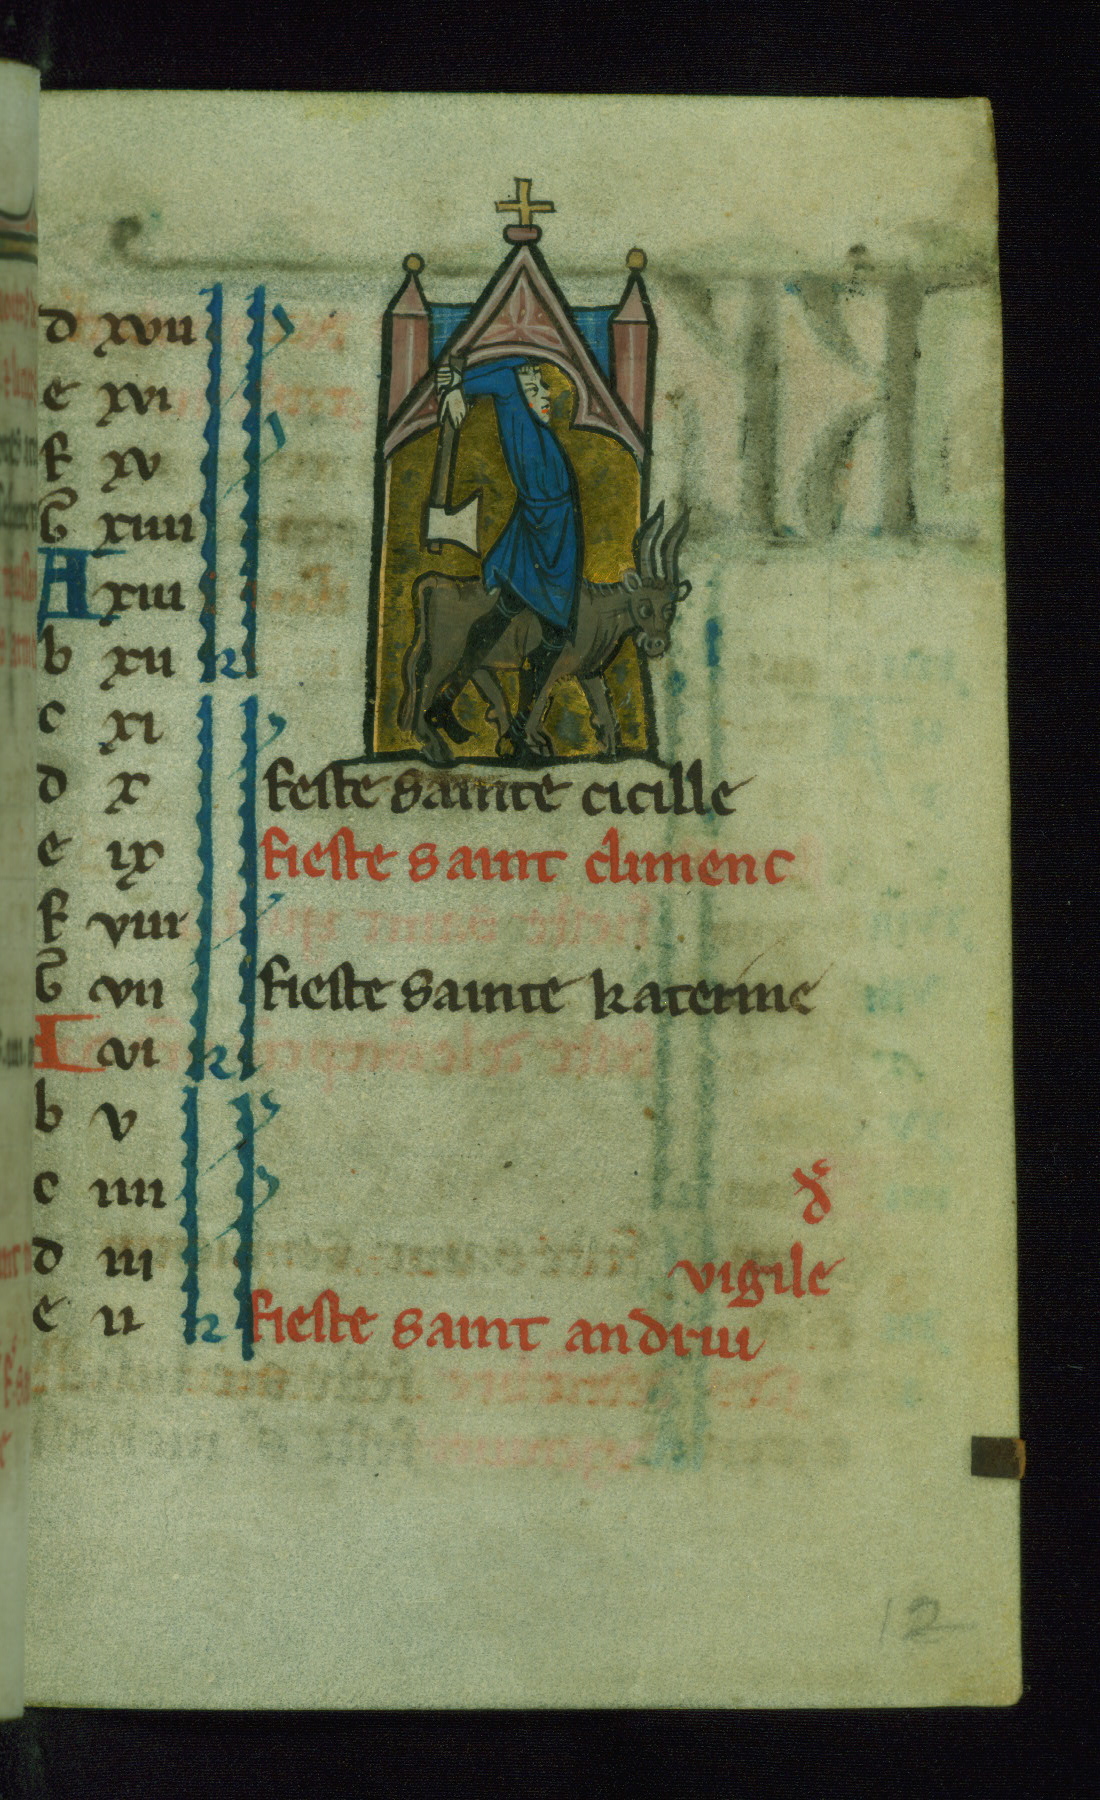 d xvii
e xvi
f xv
G xiiii
A xiii
b xii kl
c xi
d x feste sainte cicille
e ix fieste saint climent
f viii
G vii fieste sainte katerine
A vi kl
b v
c iiii
d iii vigile
e ii kl fieste saint andriu
12